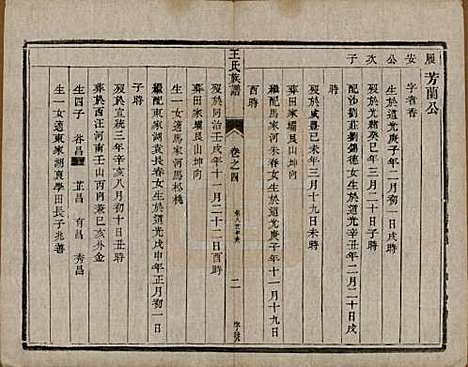 芳蘭公
履安公次子
字者香
生於道光庚子年二月初一日戌時
歿於光緒癸巳年三月二十日子時
配沙劉莊劉錫德女生於道光庚子年二月二十日
未時
歿於咸豐己未年三月十九日未時
葬田家壩艮山坤向
繼配馬家河朱春女生於道光庚子年十一月十九日
酉時
王氏族譜
卷之四
二
歿於同治壬戌年十一月二十二日酉時
葬田家壩艮山坤向
生一女適馬家河馬彬橋
繼配東家湖袁長春女生於道光戊申年正月初一日
子時
歿於宣統三年辛亥八月初十日丑時
葬於西汪河南壬山丙向兼巳亥分金
生四子 谷昌 芷昌 有昌 秀昌
生一女適東家湖袁學田長子兆善